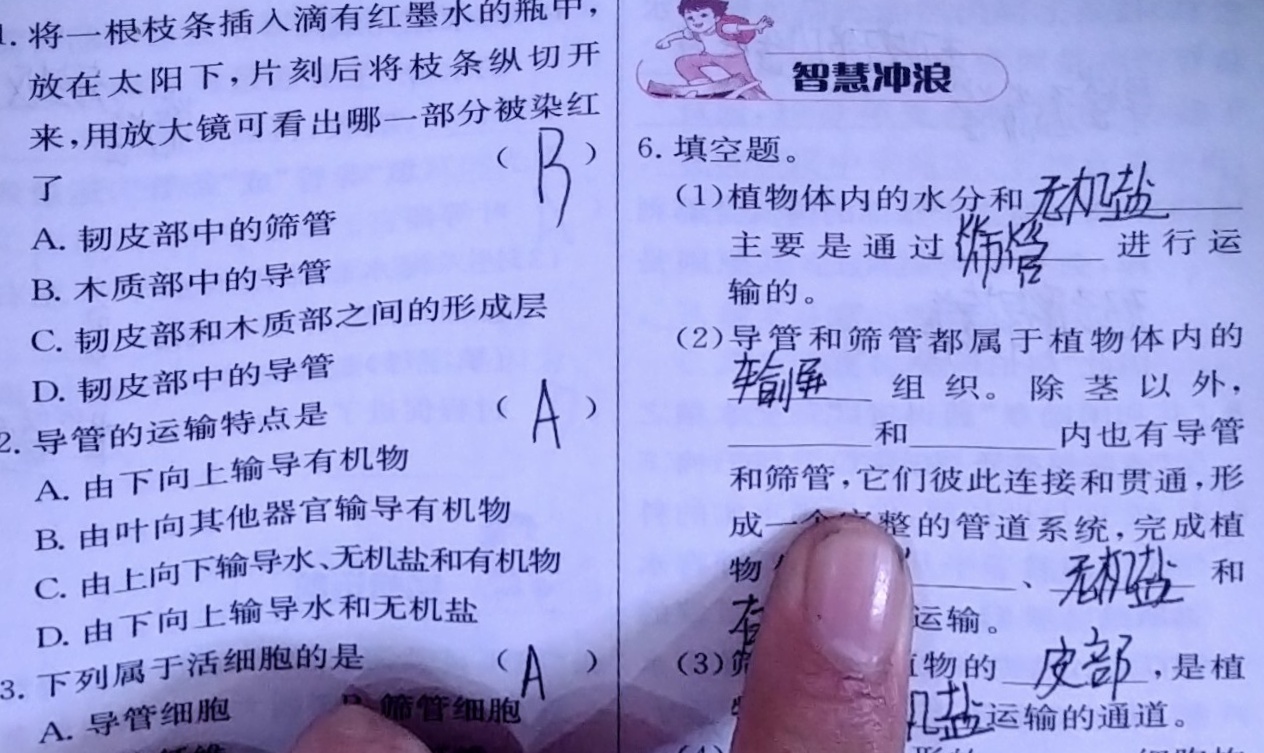 1. 将一根枝条插入滴有红墨水的瓶中,
放在太阳下,片刻后将枝条纵切开
来,用放大镜可看出哪一部分被染红
了 ( B )
A. 韧皮部中的筛管
B. 木质部中的导管
C. 韧皮部和木质部之间的形成层
D. 韧皮部中的导管
2. 导管的运输特点是 ( A )
A. 由下向上输导有机物
B. 由叶向其他器官输导有机物
C. 由上向下输导水、无机盐和有机物
D. 由下向上输导水和无机盐
3. 下列属于活细胞的是 ( A )
A. 导管细胞 B. 筛管细胞
智慧冲浪
6. 填空题。
(1)植物体内的水分和无机盐
主要是通过筛管进行运
输的。
(2)导管和筛管都属于植物体内的
组织。除茎以外,
______和______内也有导管
和筛管,它们彼此连接和贯通,形
成一个完整的管道系统,完成植
物 、无机盐 和
运输。
(3)筛 植物的 皮部,是植
机盐运输的通道。